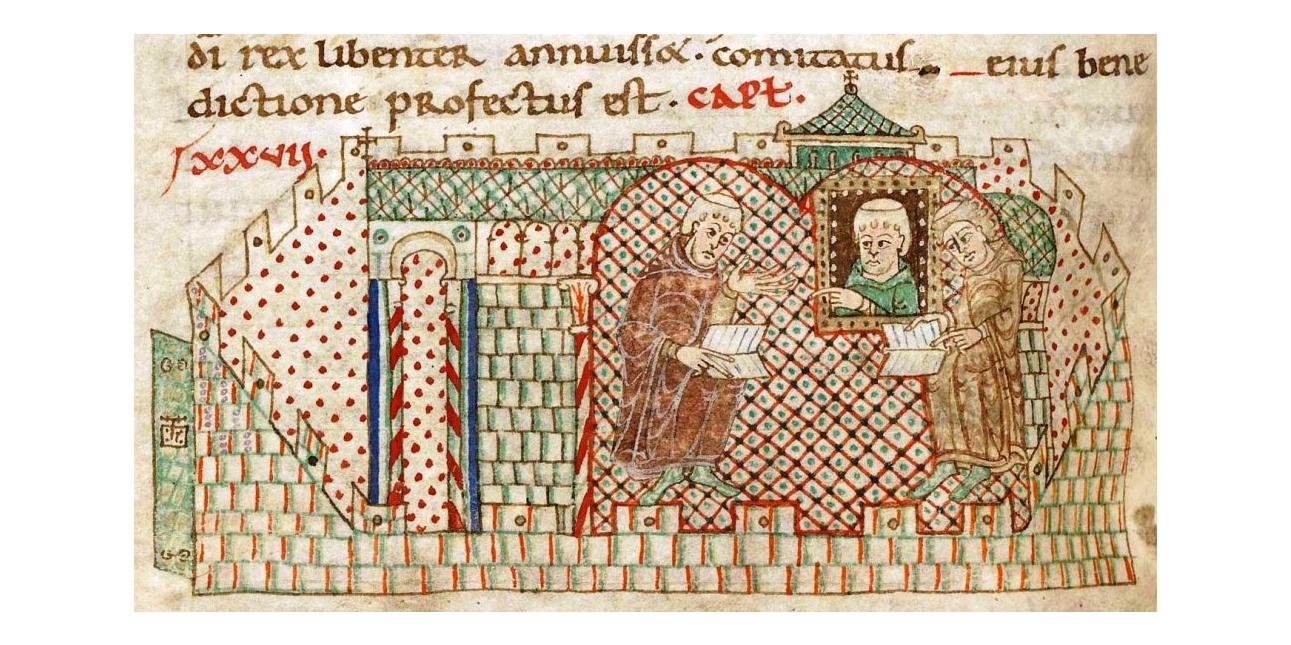 di rex libenter annuisset. comitatus eius bene
dictione profectus est. CAPT.
XXVII.